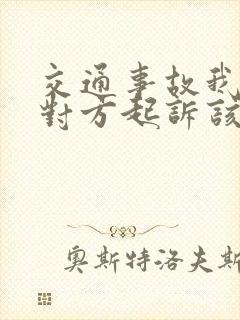 交通事故我
對方起訴該
奧斯特洛夫斯